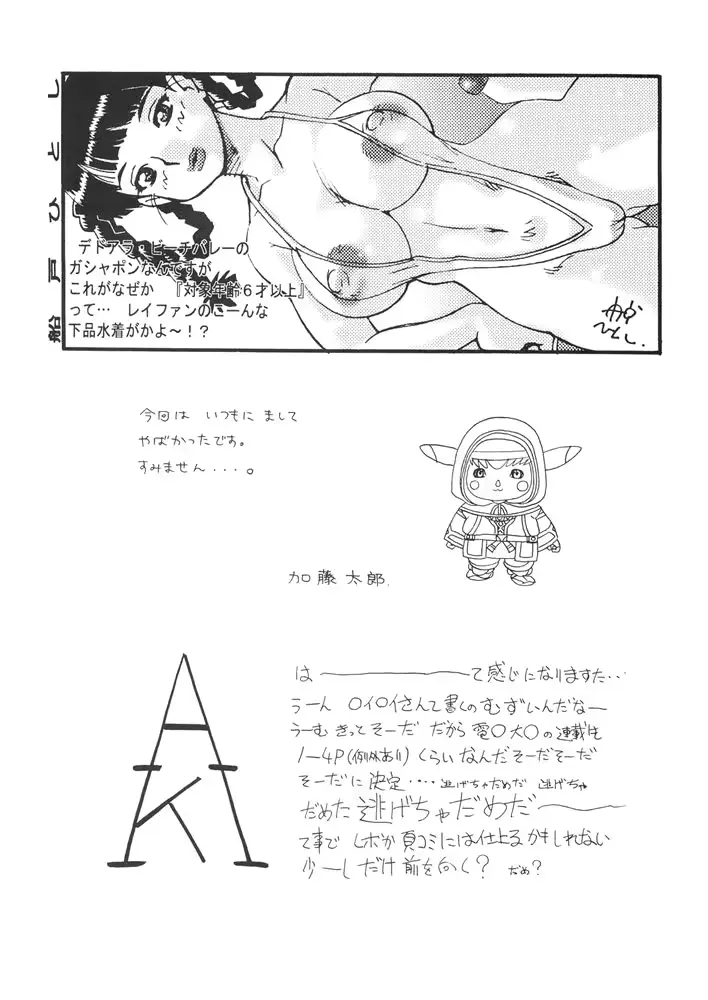 船戸ひとし
デドアラ・ビーチバレーの
ガシャポンなんですが
これがなぜか 『対象年齢6才以上』
って… レイファンのこーんな
下品水着がかよ～!?
ひとし.
今回は いつもに まして
やばかったです。
すみません・・・・。
加藤 太郎.
AK
は――――て感じになりますた・・
うーん 〇イ〇イさんて書くのむずいんだなー
うーむ きってそーだ だから 電〇大〇の連載も
1～4P(例外あり)くらい なんだそーだそーだ
そーだに 決定・・・・逃げちゃだめだ 逃げちゃ
だめだ 逃げちゃだめだ――――
て事で レポか 頁コミには仕上るかもしれない
少ーしだけ 前を向く? だめ?